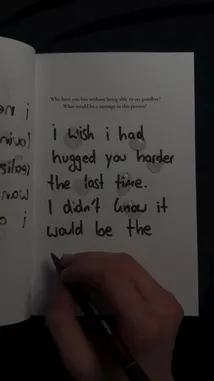 Who have you lost without being able to say goodbye?
What would be a message to this person?
i wish i had
hugged you harder
the last time.
I didn't know it
would be the